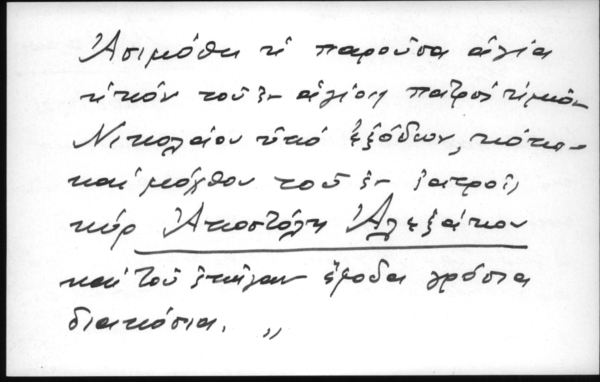 Ἀσιμόθη ἡ παροῦσα ἁγία
εἰκών τοῦ ἐν ἁγίοις πατρός ἡμῶν
Νικολάου ὑπό ἐξόδων, κόπου
καί μόχθου τοῦ ἐν ἰατροῖς
κύρ Ἀποστόλη Ἀλεξάκου
καί τοῦ ἐπῆγαν ἔξοδα γρόσια
διακόσια. ,,